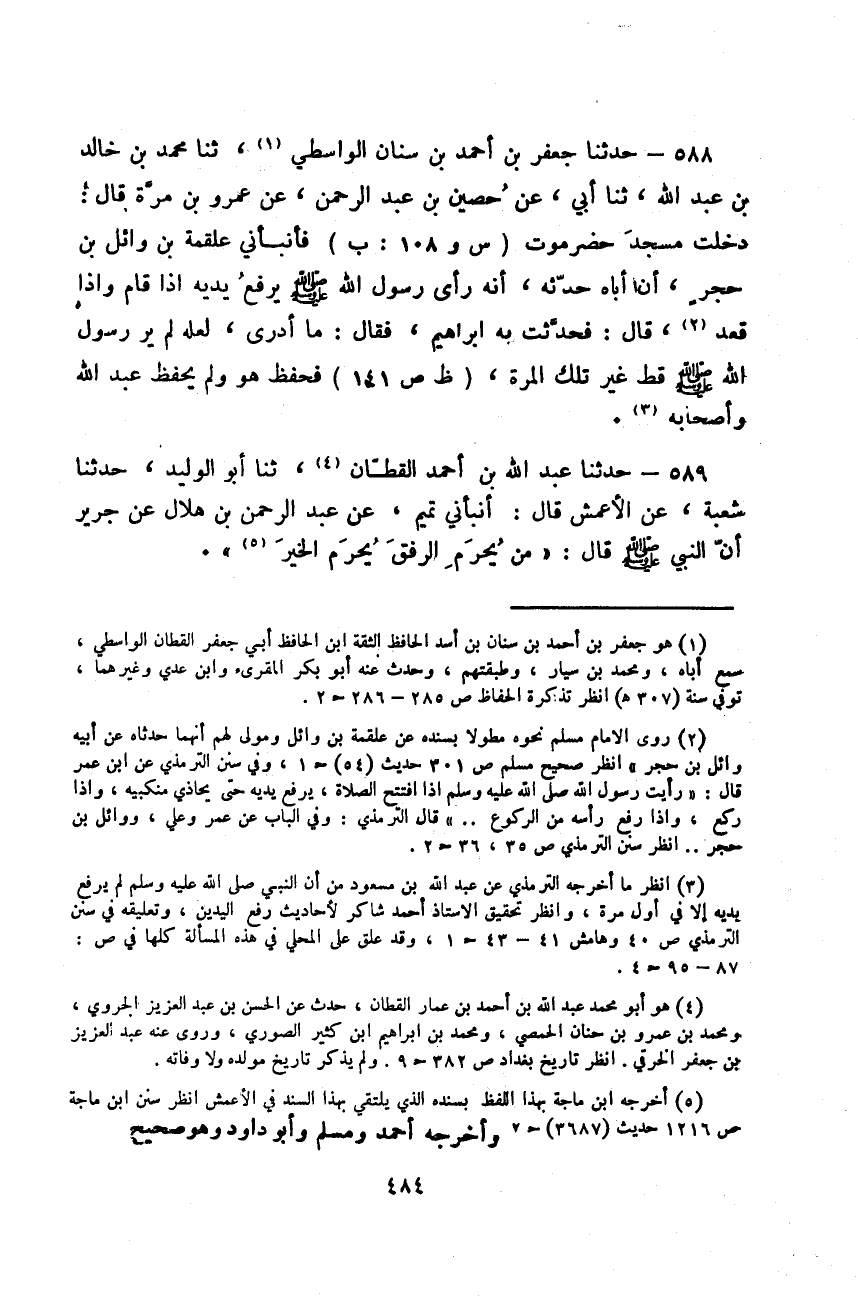 ٥٨٨ – حدثنا جعفر بن أحمد بن سنان الواسطي (١) ، ثنا محمد بن خالد
بن عبد الله ، ثنا أبي ، عن حُصين بن عبد الرحمن ، عن عمرو بن مرَّة قال :
دخلت مسجدَ حضرموت ( س و ١٠٨ : ب ) فأنبأني علقمة بن وائل بن
حجرٍ ، أن أباه حدّثه ، أنه رأى رسول الله ﷺ يرفعُ يديه اذا قام واذا
قعد (٢) ، قال : فحدَّثت به ابراهيم ، فقال : ما أدرى ، لعله لم ير رسول
الله ﷺ قط غير تلك المرة ، ( ظ ص ١٤١ ) فحفظ هو ولم يحفظ عبد الله
وأصحابه (٣) .
٥٨٩ – حدثنا عبد الله بن أحمد القطّان (٤) ، ثنا أبو الوليد ، حدثنا
شعبة ، عن الأعمش قال : أنبأني تميم ، عن عبد الرحمن بن هلال عن جرير
أنّ النبي ﷺ قال : « من يُحرَمِ الرفقَ يُحرَمِ الخيرَ (٥) » .
(١) هو جعفر بن أحمد بن سنان بن أسد الحافظ الثقة ابن الحافظ أبي جعفر القطان الواسطي ،
سمع أباه ، ومحمد بن سيار ، وطبقتهم ، وحدث عنه أبو بكر المقرىء وابن عدي وغيرهما ،
توفي سنة (٣٠٧ ه) انظر تذكرة الحفاظ ص ٢٨٥ – ٢٨٦ ج ٢ .
(٢) روى الامام مسلم نحوه مطولا بسنده عن علقمة بن وائل ومولى لهم أنهما حدثاه عن أبيه
وائل بن حجر » انظر صحيح مسلم ص ٣٠١ حديث (٥٤) ج ١ ، وفي سنن الترمذي عن ابن عمر
قال : « رأيت رسول الله صلى الله عليه وسلم اذا افتتح الصلاة ، يرفع يديه حتى يحاذي منكبيه ، واذا
ركع ، واذا رفع رأسه من الركوع .. » قال الترمذي : وفي الباب عن عمر وعلي ، ووائل بن
حجر .. انظر سنن الترمذي ص ٣٥ ، ٣٦ ج ٢ .
(٣) انظر ما أخرجه الترمذي عن عبد الله بن مسعود من أن النبي صلى الله عليه وسلم لم يرفع
يديه إلا في أول مرة ، وانظر تحقيق الاستاذ أحمد شاكر لأحاديث رفع اليدين ، وتعليقه في سنن
الترمذي ص ٤٠ وهامش ٤١ – ٤٣ ج ١ ، وقد علق على المحلي في هذه المسألة كلها في ص :
٨٧ – ٩٥ ج ٤ .
(٤) هو أبو محمد عبد الله بن أحمد بن عمار القطان ، حدث عن الحسن بن عبد العزيز الجروي ،
ومحمد بن عمرو بن حنان الحمصي ، ومحمد بن ابراهيم ابن كثير الصوري ، وروى عنه عبد العزيز
بن جعفر الخرقي . انظر تاريخ بغداد ص ٣٨٢ ج ٩ . ولم يذكر تاريخ مولده ولا وفاته .
(٥) أخرجه ابن ماجة بهذا اللفظ بسنده الذي يلتقي بهذا السند في الأعمش انظر سنن ابن ماجة
ص ١٢١٦ حديث (٣٦٨٧) ج ٢ وأخرجه أحمد ومسلم وأبو داود وهو صحيح
٤٨٤